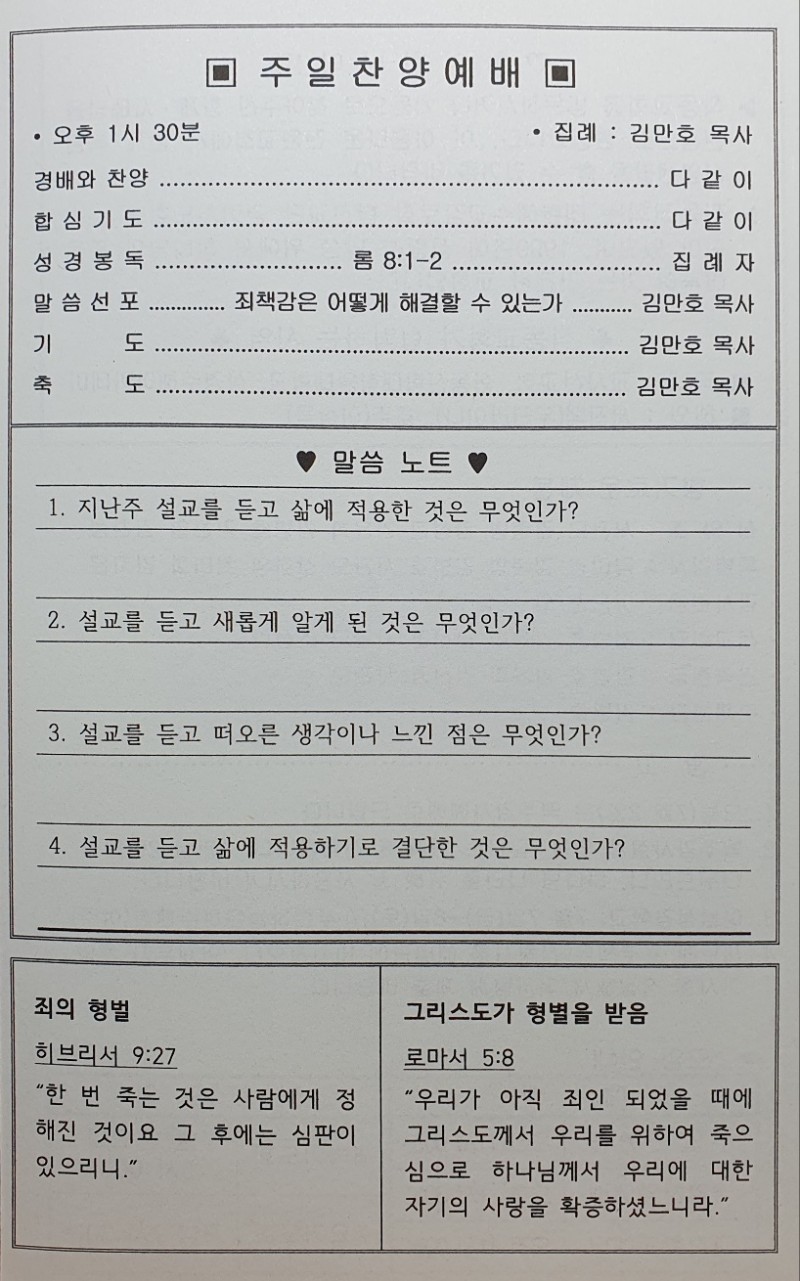 ▣ 주일찬양예배 ▣
• 오후 1시 30분 • 집례 : 김만호 목사
경배와 찬양 ........................ 다 같 이
합 심 기 도 ........................ 다 같 이
성 경 봉 독 ............ 롬 8:1-2 ............ 집 례 자
말 씀 선 포 ............ 죄책감은 어떻게 해결할 수 있는가 ........... 김만호 목사
기 도 ........................ 김만호 목사
축 도 ........................ 김만호 목사
♥ 말씀 노트 ♥
1. 지난주 설교를 듣고 삶에 적용한 것은 무엇인가?
2. 설교를 듣고 새롭게 알게 된 것은 무엇인가?
3. 설교를 듣고 떠오른 생각이나 느낀 점은 무엇인가?
4. 설교를 듣고 삶에 적용하기로 결단한 것은 무엇인가?
죄의 형벌
히브리서 9:27
"한 번 죽는 것은 사람에게 정
해진 것이요 그 후에는 심판이
있으리니."
그리스도가 형별을 받음
로마서 5:8
"우리가 아직 죄인 되었을 때에
그리스도께서 우리를 위하여 죽으
심으로 하나님께서 우리에 대한
자기의 사랑을 확증하셨느니라."